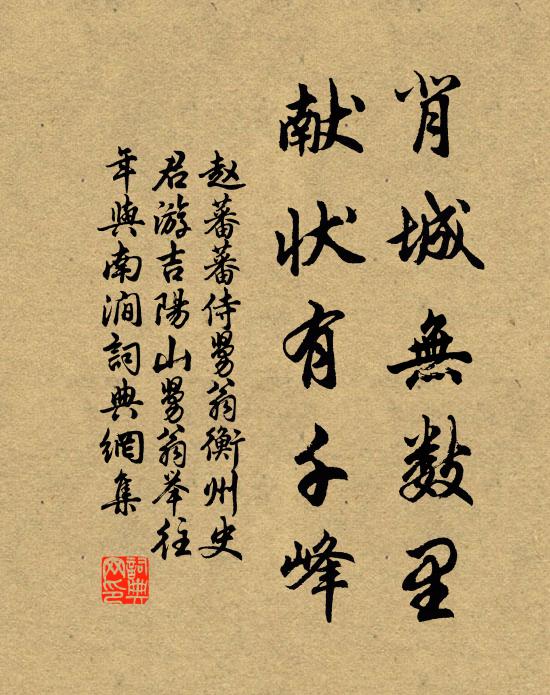 背城無数里
献状有千峰
赵蕃蕃侍舅翁衡州史
君游吉陽山舅翁举往
年與南澗詞典網集
詞典网印